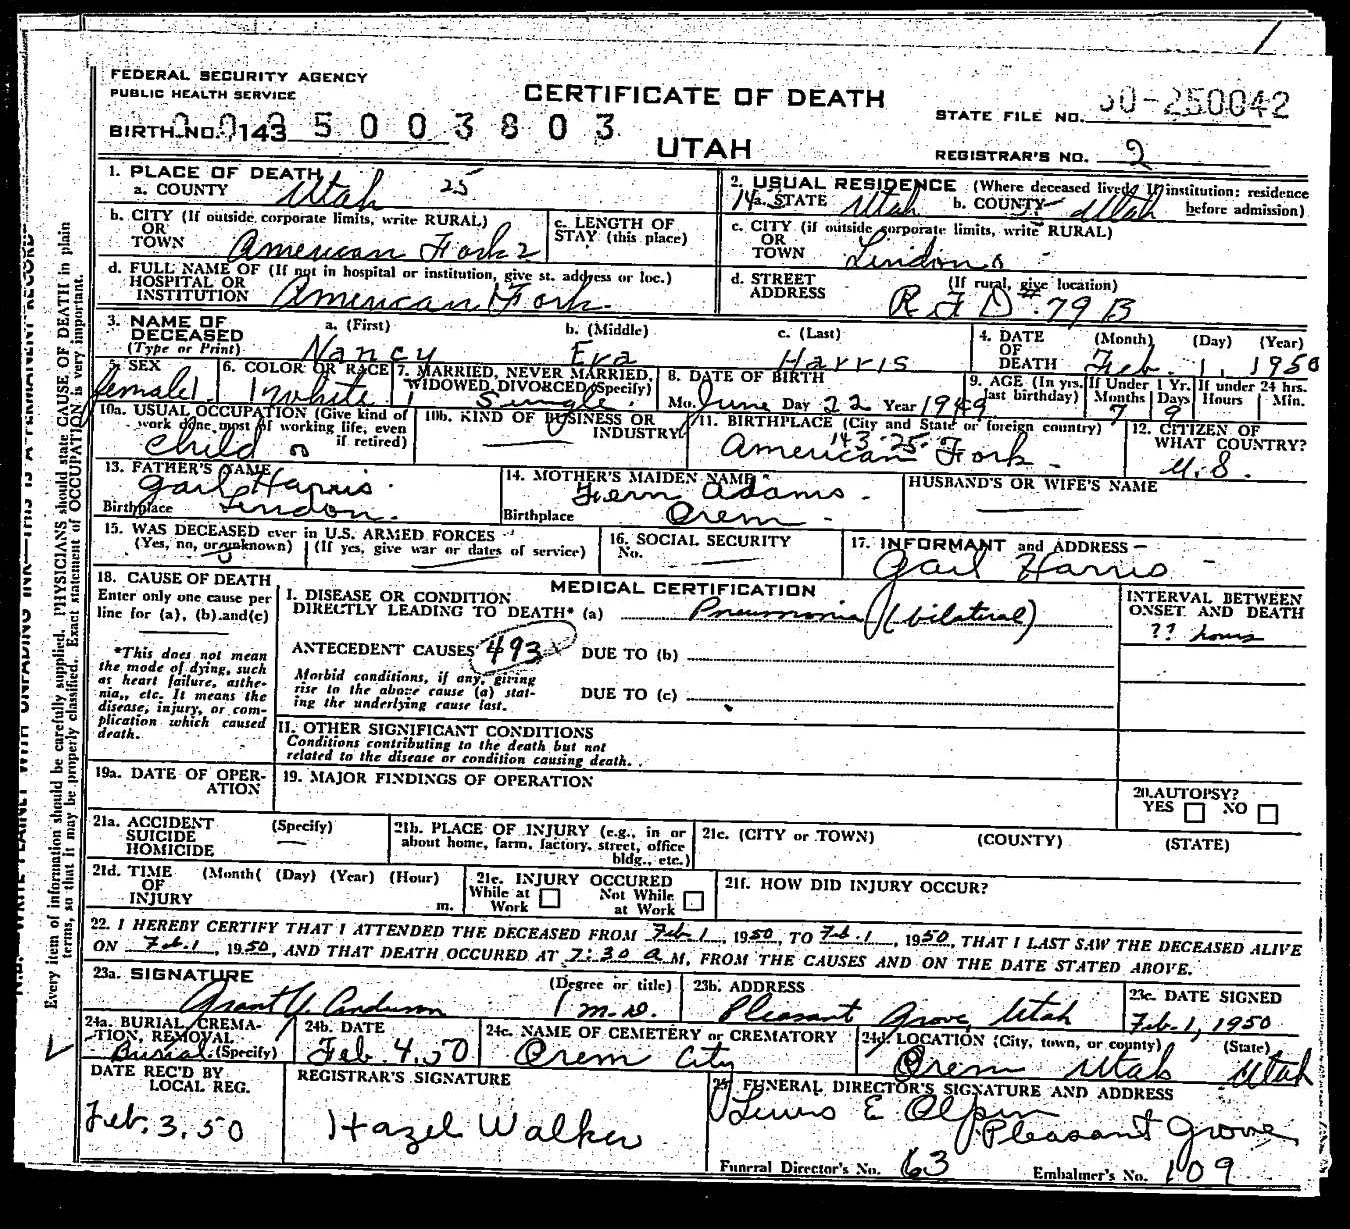 FEDERAL SECURITY AGENCY
PUBLIC HEALTH SERVICE
CERTIFICATE OF DEATH
UTAH
BIRTH NO. 143 5003803
STATE FILE NO. 50-250042
REGISTRAR'S NO. 2
1. PLACE OF DEATH
a. COUNTY Utah 25
b. CITY (If outside corporate limits, write RURAL)
OR
TOWN American Fork 2
c. LENGTH OF
STAY (this place)
d. FULL NAME OF (If not in hospital or institution, give st. address or loc.)
HOSPITAL OR
INSTITUTION American Fork
2. USUAL RESIDENCE (Where deceased lived. If institution: residence
before admission)
14 a. STATE Utah b. COUNTY Utah
c. CITY (if outside corporate limits, write RURAL)
OR
TOWN Lindon
d. STREET (If rural, give location)
ADDRESS R F D # 79 B
3. NAME OF a. (First) b. (Middle) c. (Last)
DECEASED
(Type or Print) Nancy Eva Harris
4. DATE (Month) (Day) (Year)
OF
DEATH Feb. 1, 1950
5. SEX
female
6. COLOR OR RACE
white
7. MARRIED, NEVER MARRIED,
WIDOWED DIVORCED (Specify)
Single
8. DATE OF BIRTH
Mo. June Day 22 Year 1949
9. AGE (In yrs. last birthday) If Under 1 Yr. If under 24 hrs.
Months 7 Days 9 Hours Min.
10a. USUAL OCCUPATION (Give kind of
work done most of working life, even
if retired)
child
10b. KIND OF BUSINESS OR
INDUSTRY
11. BIRTHPLACE (City and State or foreign country)
143-25
American Fork
12. CITIZEN OF
WHAT COUNTRY?
U.S.
13. FATHER'S NAME
Gail Harris
Birthplace Lindon
14. MOTHER'S MAIDEN NAME
Fern Adams
Birthplace Orem
HUSBAND'S OR WIFE'S NAME
15. WAS DECEASED ever in U.S. ARMED FORCES
(Yes, no, or unknown) (If yes, give war or dates of service)
16. SOCIAL SECURITY
No.
17. INFORMANT and ADDRESS
Gail Harris
18. CAUSE OF DEATH
Enter only one cause per
line for (a), (b) and (c)
*This does not mean
the mode of dying, such
as heart failure, asthe-
nia, etc. It means the
disease, injury, or com-
plication which caused
death.
MEDICAL CERTIFICATION
I. DISEASE OR CONDITION
DIRECTLY LEADING TO DEATH* (a) Pneumonia (bilateral)
ANTECEDENT CAUSES 493 DUE TO (b)
Morbid conditions, if any, giving
rise to the above cause (a) stat-
ing the underlying cause last.
DUE TO (c)
INTERVAL BETWEEN
ONSET AND DEATH
?? hours
II. OTHER SIGNIFICANT CONDITIONS
Conditions contributing to the death but not
related to the disease or condition causing death.
19a. DATE OF OPER-
ATION
19. MAJOR FINDINGS OF OPERATION
20. AUTOPSY?
YES NO
21a. ACCIDENT (Specify)
SUICIDE
HOMICIDE
21b. PLACE OF INJURY (e.g., in or
about home, farm, factory, street, office
bldg., etc.)
21c. (CITY or TOWN) (COUNTY) (STATE)
21d. TIME (Month( (Day) (Year) (Hour)
OF
INJURY m.
21e. INJURY OCCURED
While at Work Not While at Work
21f. HOW DID INJURY OCCUR?
22. I HEREBY CERTIFY THAT I ATTENDED THE DECEASED FROM Feb 1, 1950, TO Feb. 1, 1950, THAT I LAST SAW THE DECEASED ALIVE
ON Feb. 1, 1950, AND THAT DEATH OCCURED AT 7:30 a M, FROM THE CAUSES AND ON THE DATE STATED ABOVE.
23a. SIGNATURE (Degree or title)
Grant Y. Anderson M.D.
23b. ADDRESS
Pleasant Grove, Utah
23c. DATE SIGNED
Feb. 1, 1950
24a. BURIAL, CREMA-
TION, REMOVAL
Burial (Specify)
24b. DATE
Feb. 4, 50
24c. NAME OF CEMETERY or CREMATORY
Orem City
24d. LOCATION (City, town, or county) (State)
Orem Utah Utah
DATE REC'D BY
LOCAL REG.
Feb. 3, 50
REGISTRAR'S SIGNATURE
Hazel Walker
25. FUNERAL DIRECTOR'S SIGNATURE AND ADDRESS
E Olpin
Pleasant Grove
Funeral Director's No. 63 Embalmer's No. 109
Every item of information should be carefully supplied. PHYSICIANS should state CAUSE OF DEATH in plain
terms, so that it may be properly classified. Exact statement of OCCUPATION is very important.